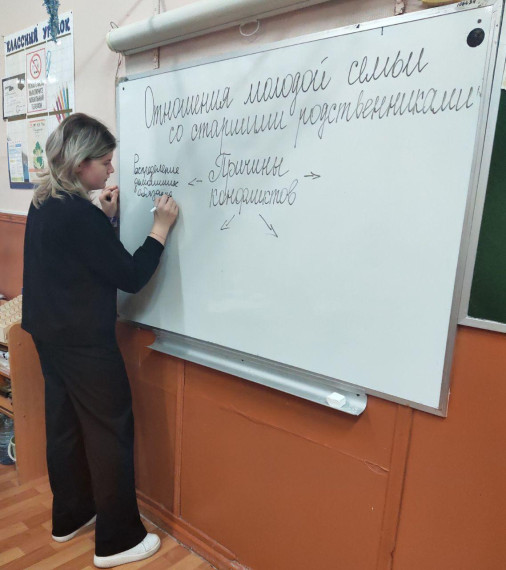 КЛАССНЫЙ УГОЛОК
Отношения молодой семьи
со старшими родственниками
Распределение
домашних
Причины
конфликтов